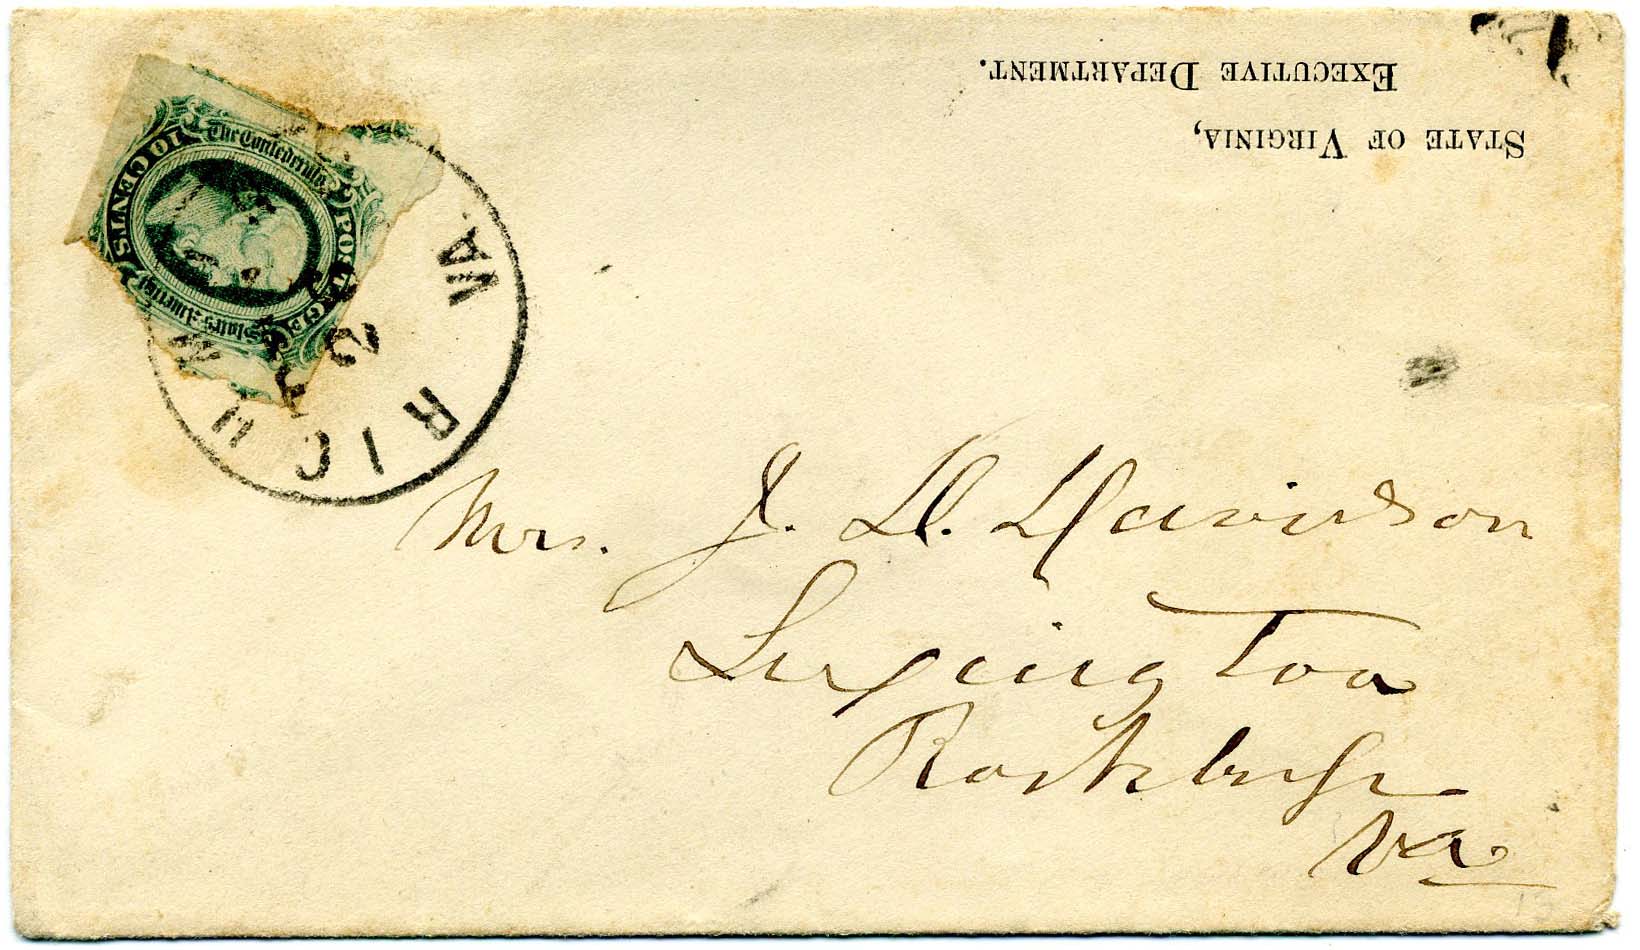 STATE OF VIRGINIA,
EXECUTIVE DEPARTMENT.
The Confederate
States America
POSTAGE
10 CENTS
RICHM
VA.
Mrs. J. D. Davidson
Lexington
Rockbridge
Va
13